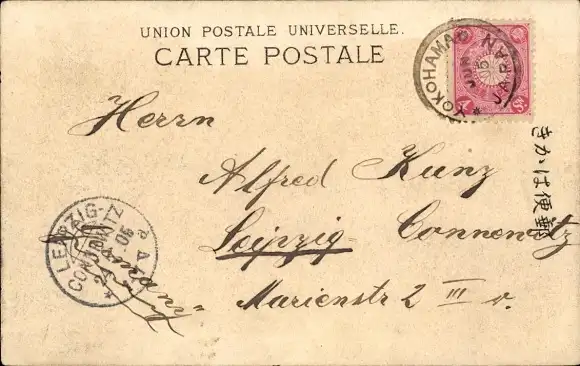 UNION POSTALE UNIVERSELLE.
CARTE POSTALE
YOKOHAMA
JAPAN
郵便はかき
Herrn
Alfred Kunz
Leipzig Connewitz
Marienstr 2 III v.
Germany
LEIPZIG-
CONNEWITZ